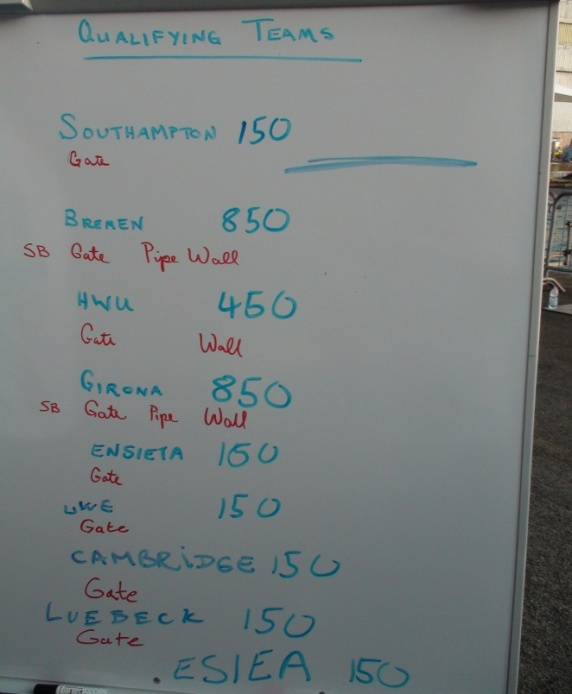 QUALIFYING TEAMS
SOUTHAMPTON 150
Gate
BREMEN 850
SB Gate Pipe Wall
HWU 450
Gate Wall
GIRONA 850
SB Gate Pipe Wall
ENSIETA 150
Gate
UWE 150
Gate
CAMBRIDGE 150
Gate
LUEBECK 150
Gate
ESIEA 150